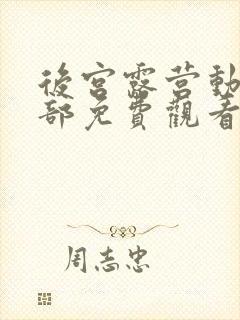 後宮露营動
部免費觀看
周志忠